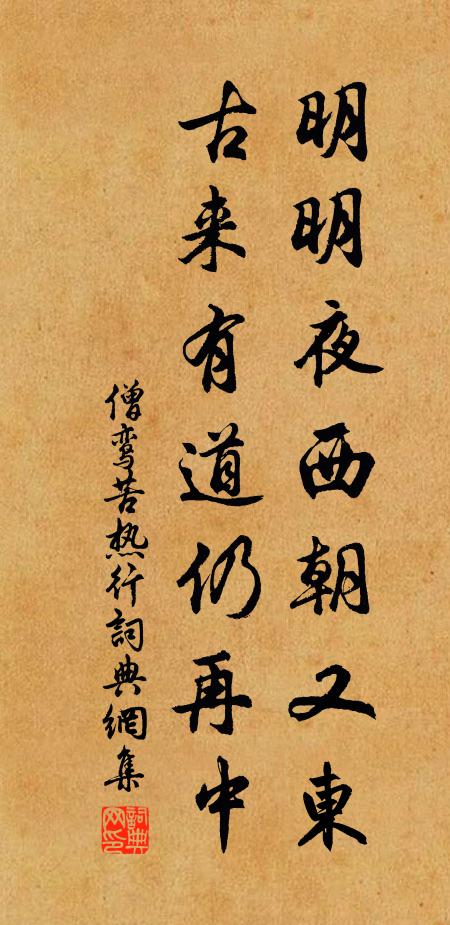 明明夜西朝又東
古来有道仍再中
僧鸾苦热行詞典網集
詞典網印